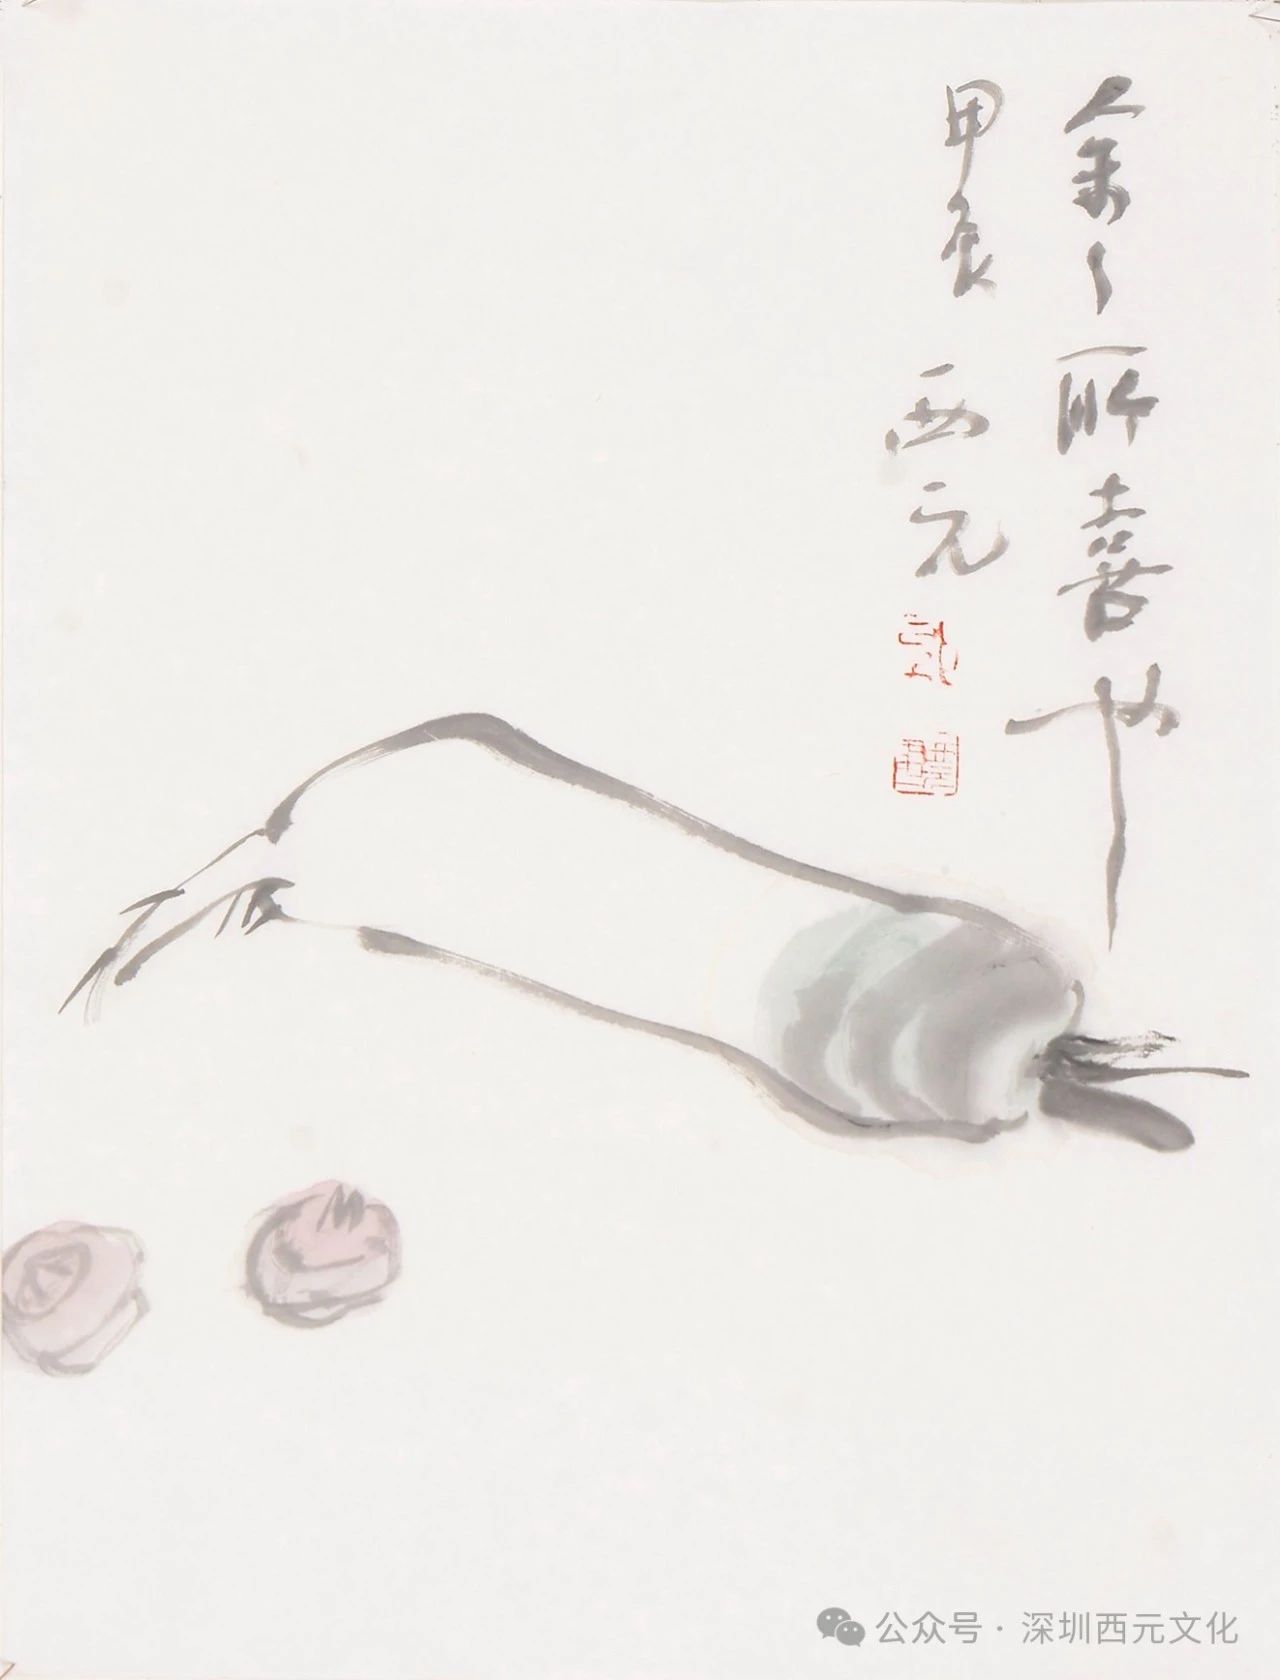 余之所喜也
甲辰
西元
公众号·深圳西元文化